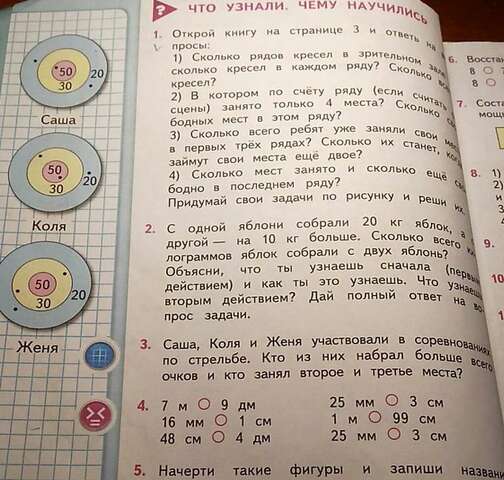 ? ЧТО УЗНАЛИ. ЧЕМУ НАУЧИЛИСЬ
50
20
30
Саша
50
20
30
Коля
50
20
30
Женя
1. Открой книгу на странице 3 и ответь на
просы:
1) Сколько рядов кресел в зрительном зале
сколько кресел в каждом ряду? Сколько
кресел?
2) В котором по счёту ряду (если считать
сцены) занято только 4 места? Сколько
бодных мест в этом ряду?
3) Сколько всего ребят уже заняли свои
в первых трёх рядах? Сколько их станет,
займут свои места ещё двое?
4) Сколько мест занято и сколько ещё
бодно в последнем ряду?
Придумай свои задачи по рисунку и реши их.
2. С одной яблони собрали 20 кг яблок, а
другой — на 10 кг больше. Сколько всего
лограммов яблок собрали с двух яблонь?
Объясни, что ты узнаешь сначала
действием) и как ты это узнаешь. Что
вторым действием? Дай полный ответ на во-
прос задачи.
3. Саша, Коля и Женя участвовали в соревнованиях
по стрельбе. Кто из них набрал больше всего
очков и кто занял второе и третье места?
4. 7 м ○ 9 дм 25 мм ○ 3 см
16 мм ○ 1 см 1 м ○ 99 см
48 см ○ 4 дм 25 мм ○ 3 см
5. Начерти такие фигуры и запиши
6.
8 ○
8 ○
7.
8. 1)
2)
9.
10